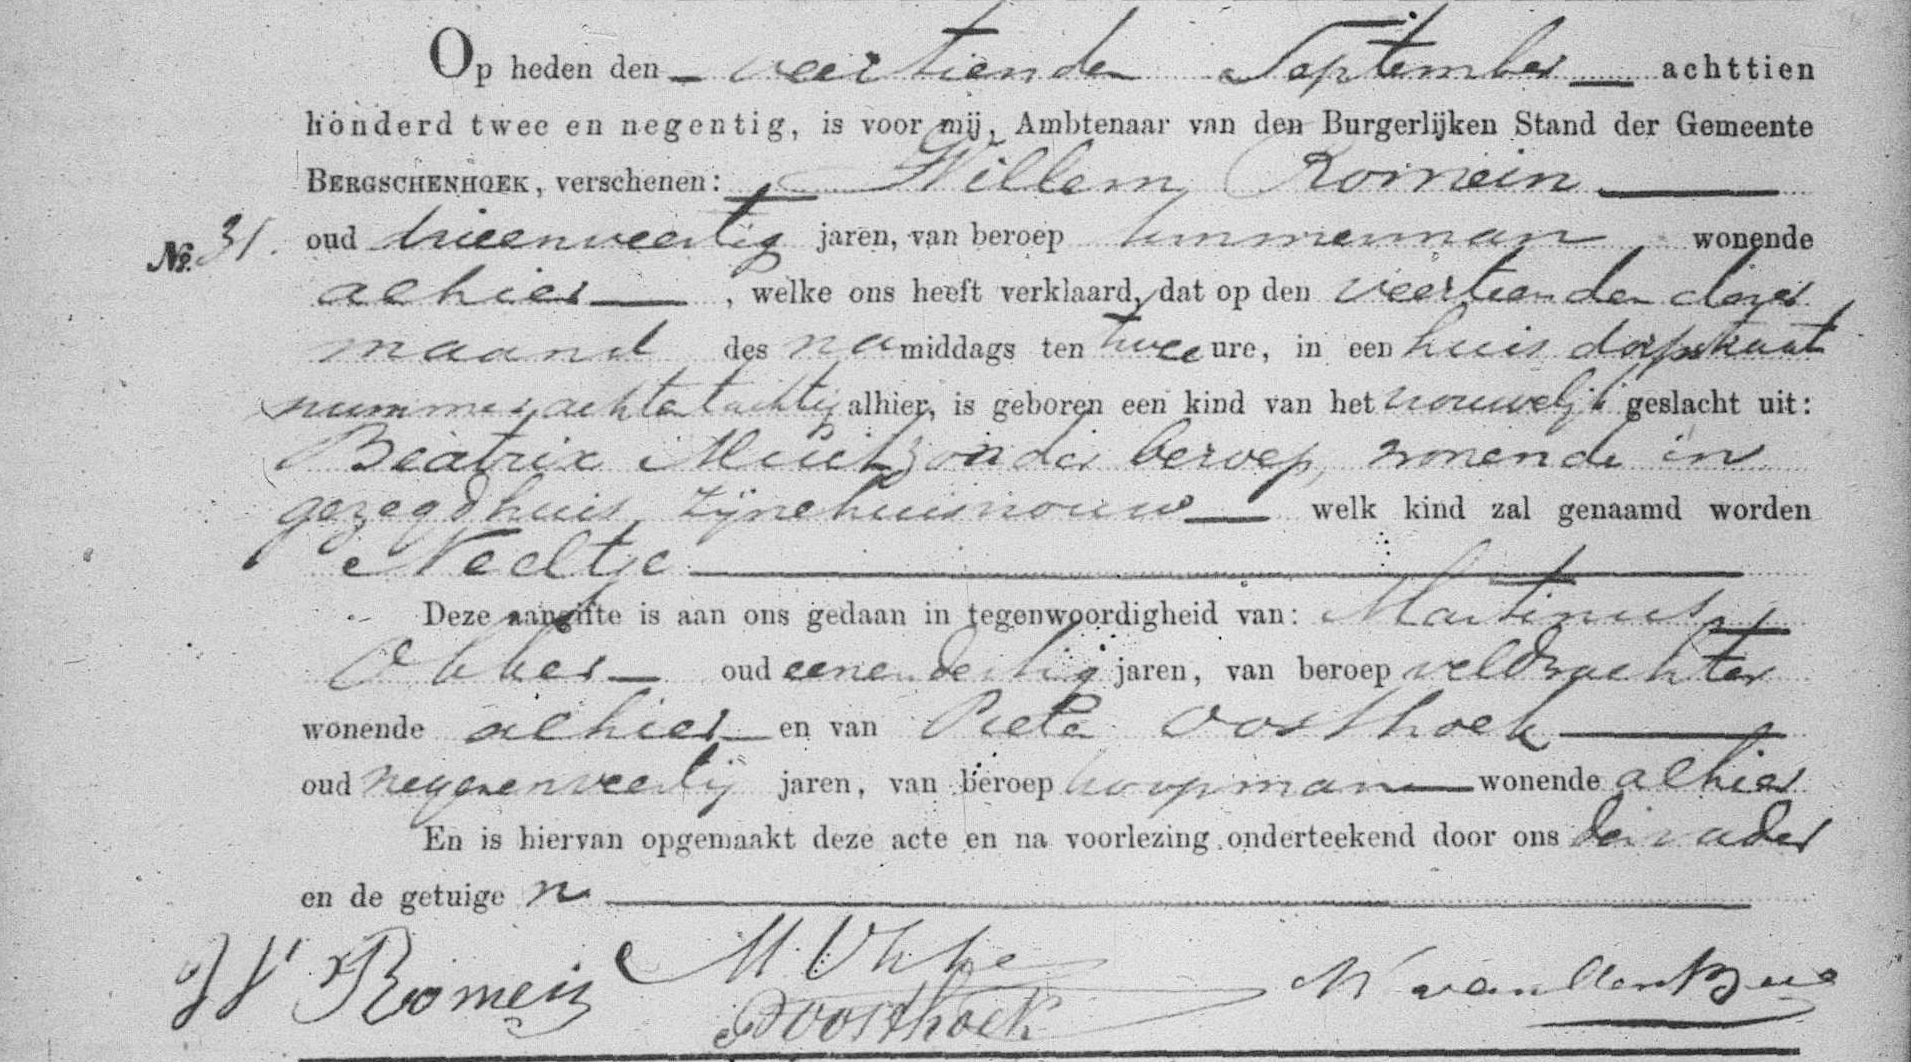 Op heden den veertienden September achttien
honderd twee en negentig, is voor mij, Ambtenaar van den Burgerlijken Stand der Gemeente
BERGSCHENHOEK, verschenen: Willem Romein
No. 31. oud drieenveertig jaren, van beroep timmerman wonende
alhier, welke ons heeft verklaard, dat op den veertienden dezer
maand des namiddags ten twee ure, in een huis dorpstraat
nummer achtentachtig alhier, is geboren een kind van het vrouwelijk geslacht uit:
Beatrix zonder beroep, wonende in
gezegd huis, zijne huisvrouw welk kind zal genaamd worden
Neeltje
Deze aangifte is aan ons gedaan in tegenwoordigheid van: Martinus
oud eenendertig jaren, van beroep veldwachter
wonende alhier en van Pieter Oosthoek
oud negenenveertig jaren, van beroep koopman wonende alhier
En is hiervan opgemaakt deze acte en na voorlezing onderteekend door ons den vader
en de getuigen
W Romein M
P Oosthoek